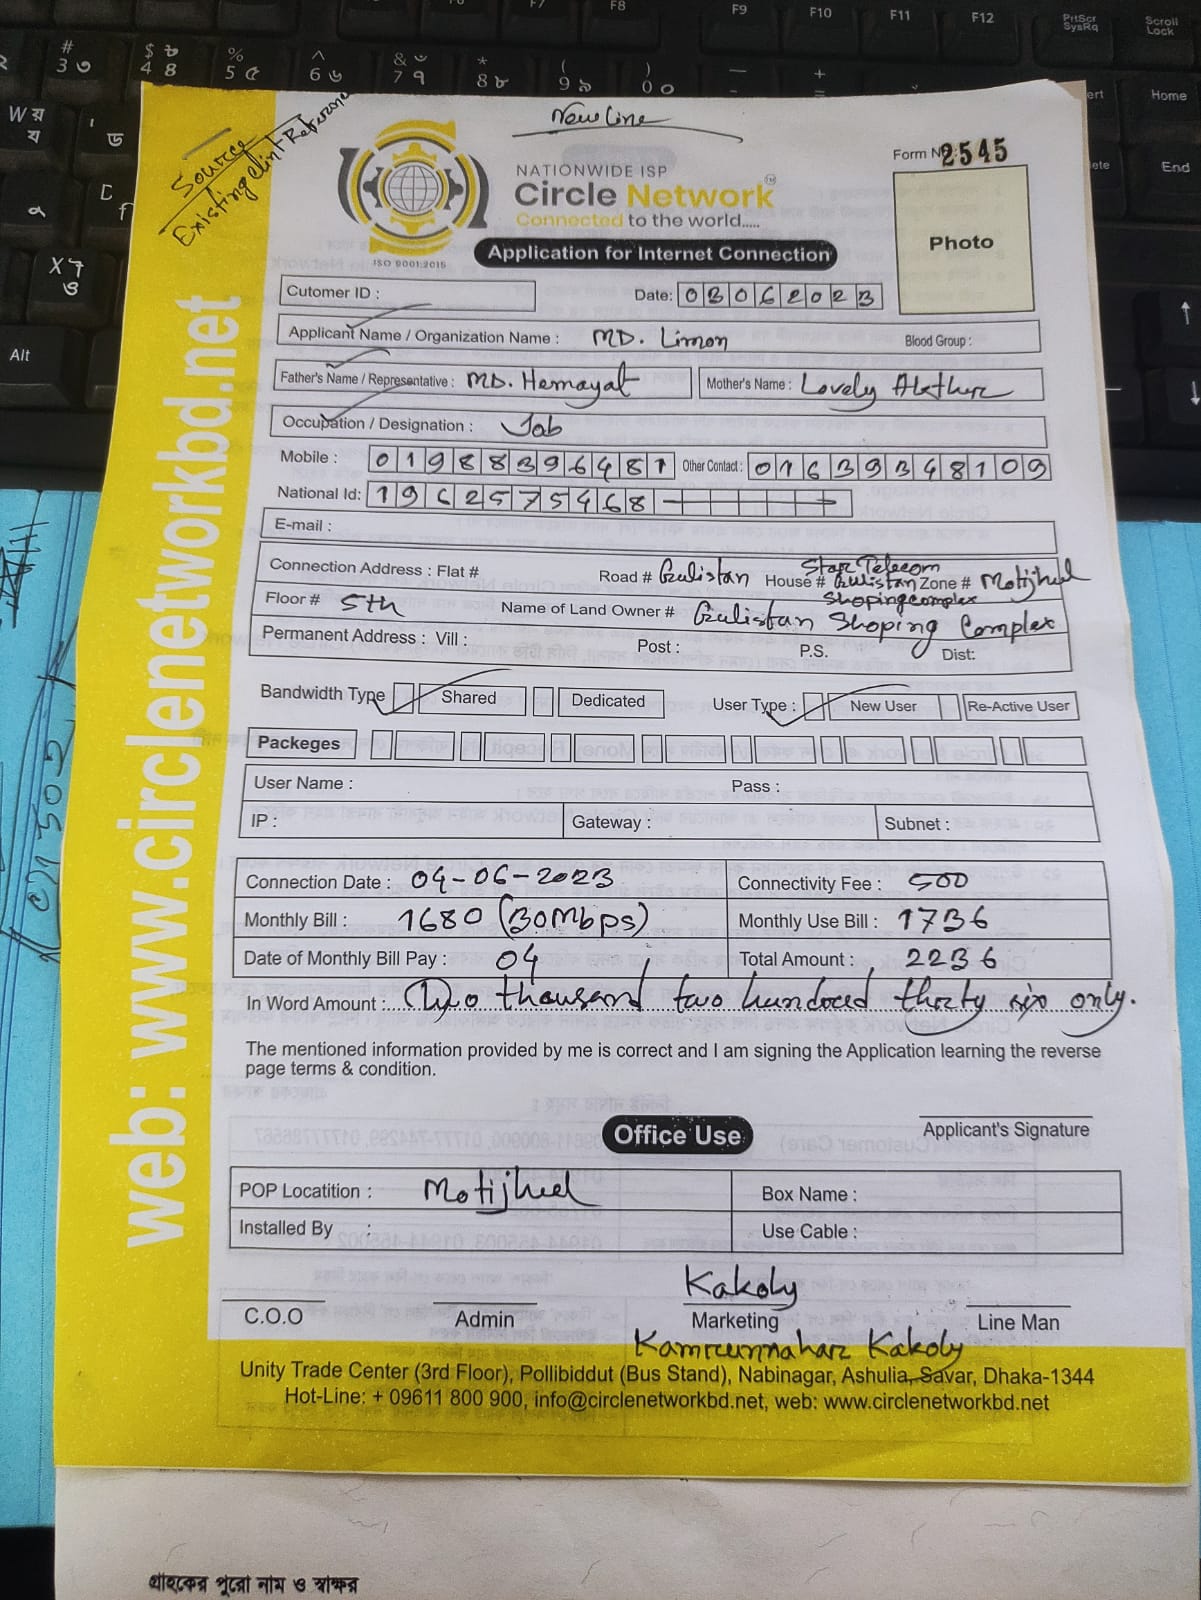 New Line
Source
Existing Clint Reference
Form No 2545
NATIONWIDE ISP
Circle Network
Connected to the world.....
ISO 9001:2015
Application for Internet Connection
Photo
Cutomer ID :
Date: 03062023
Applicant Name / Organization Name : MD. Limon
Blood Group :
Father's Name / Representative : MD. Hemayat
Mother's Name : Lovely Akther
Occupation / Designation : Job
Mobile : 01988396481 Other Contact : 01639348109
National Id: 1962575468
E-mail :
Connection Address : Flat # Road # Gulistan House # Star Telecom Gulistan Shoping complex Zone # Motijheel
Floor # 5th Name of Land Owner # Gulistan Shoping Complex
Permanent Address : Vill : Post : P.S. Dist:
Bandwidth Type Shared Dedicated User Type : New User Re-Active User
Packeges
User Name : Pass :
IP : Gateway : Subnet :
Connection Date : 04-06-2023 Connectivity Fee : 500
Monthly Bill : 1680 (30Mbps) Monthly Use Bill : 1736
Date of Monthly Bill Pay : 04 Total Amount : 2236
In Word Amount : Two thousand two hundred thirty six only.
The mentioned information provided by me is correct and I am signing the Application learning the reverse
page terms & condition.
Applicant's Signature
Office Use
POP Locatition : Motijheel Box Name :
Installed By : Use Cable :
Kakoly
C.O.O Admin Marketing Line Man
Kamrunnahar Kakoly
Unity Trade Center (3rd Floor), Pollibiddut (Bus Stand), Nabinagar, Ashulia, Savar, Dhaka-1344
Hot-Line: + 09611 800 900, info@circlenetworkbd.net, web: www.circlenetworkbd.net
web: www.circlenetworkbd.net
গ্রাহকের পুরো নাম ও স্বাক্ষর